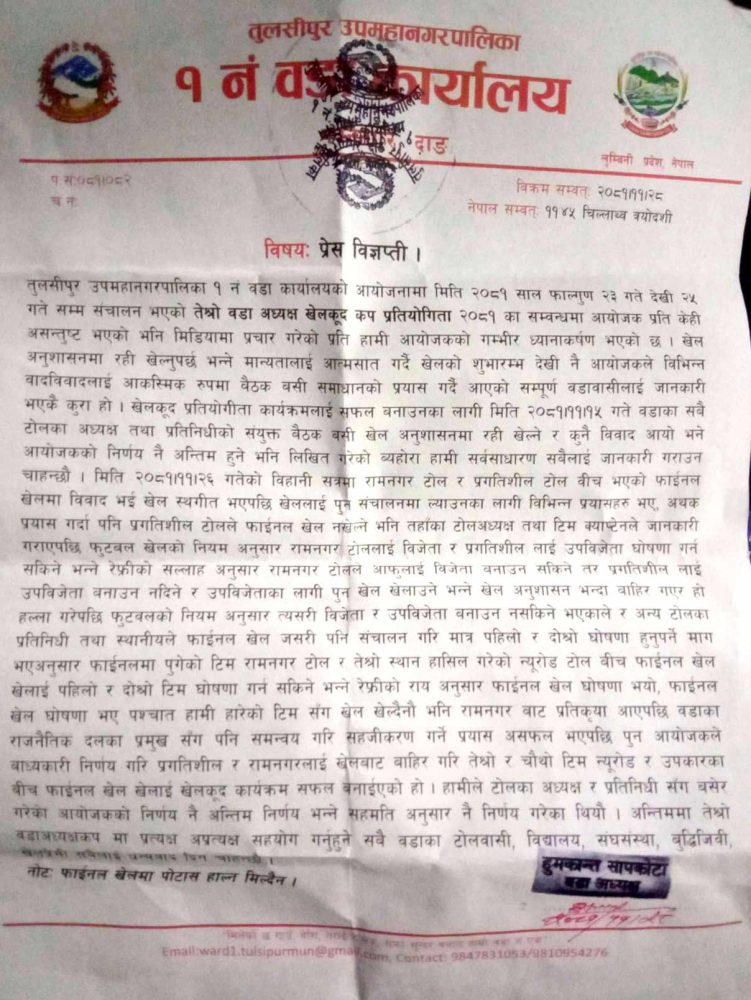 तुलसीपुर उपमहानगरपालिका
१ नं वडा कार्यालय
दाङ
लुम्बिनी प्रदेश, नेपाल
प.सं:०८१।०८२
च.नं:
विक्रम सम्वत्: २०८१।११।२८
नेपाल सम्वत्: ११४५ चिल्लाथ्व त्रयोदशी
विषयः प्रेस विज्ञप्ती ।
तुलसीपुर उपमहानगरपालिका १ नं वडा कार्यालयको आयोजनामा मिति २०८१ साल फाल्गुण २३ गते देखी २५
गते सम्म संचालन भएको तेश्रो वडा अध्यक्ष खेलकूद कप प्रतियोगिता २०८१ का सम्वन्धमा आयोजक प्रति केही
असन्तुष्ट भएको भनि मिडियामा प्रचार गरेको प्रति हामी आयोजकको गम्भीर ध्यानाकर्षण भएको छ । खेल
अनुशासनमा रही खेल्नुपर्छ भन्ने मान्यतालाई आत्मसात गर्दै खेलको शुभारम्भ देखी नै आयोजकले विभिन्न
वादविवादलाई आकस्मिक रुपमा बैठक वसी समाधानको प्रयास गर्दै आएको सम्पूर्ण वडावासीलाई जानकारी
भएकै कुरा हो । खेलकूद प्रतियोगीता कार्यक्रमलाई सफल बनाउनका लागी मिति २०८१।११।१५ गते वडाका सबै
टोलका अध्यक्ष तथा प्रतिनिधीको संयुक्त बैठक बसी खेल अनुशासनमा रही खेल्ने र कुनै विवाद आयो भने
आयोजकको निर्णय नै अन्तिम हुने भनि लिखित गरेको व्यहोरा हामी सर्वसाधारण सवैलाई जानकारी गराउन
चाहन्छौ । मिति २०८१।११।२६ गतेको विहानी सत्रमा रामनगर टोल र प्रगतिशील टोल वीच भएको फाईनल
खेलमा विवाद भई खेल स्थगीत भएपछि खेललाई पुन संचालनमा ल्याउनका लागी विभिन्न प्रयासहरु भए, अथक
प्रयास गर्दा पनि प्रगतिशील टोलले फाईनल खेल नखेल्ने भनि तहाँका टोलअध्यक्ष तथा टिम क्याप्टेनले जानकारी
गराएपछि फुटवल खेलको नियम अनुसार रामनगर टोललाई विजेता र प्रगतिशील लाई उपविजेता घोषणा गर्न
सकिने भन्ने रेफ्रीको सल्लाह अनुसार रामनगर टोलले आफुलाई विजेता बनाउन सकिने तर प्रगतिशील लाई
उपविजेता बनाउन नदिने र उपविजेताका लागी पुन खेल खेलाउने भन्ने खेल अनुशासन भन्दा बाहिर गएर हो
हल्ला गरेपछि फुटवलको नियम अनुसार त्यसरी विजेता र उपविजेता बनाउन नसकिने भएकाले र अन्य टोलका
प्रतिनिधी तथा स्थानीयले फाईनल खेल जसरी पनि संचालन गरि मात्र पहिलो र दोश्रो घोषणा हुनुपर्ने माग
भएअनुसार फाईनलमा पुगेको टिम रामनगर टोल र तेश्रो स्थान हासिल गरेको न्यूरोड टोल वीच फाईनल खेल
खेलाई पहिलो र दोश्रो टिम घोषणा गर्न सकिने भन्ने रेफ्रीको राय अनुसार फाईनल खेल घोषणा भयो, फाईनल
खेल घोषणा भए पश्चात हामी हारेको टिम सँग खेल खेल्दैनौ भनि रामनगर वाट प्रतिकृया आएपछि वडाका
राजनैतिक दलका प्रमुख सँग पनि समन्वय गरि सहजीकरण गर्ने प्रयास असफल भएपछि पुन आयोजकले
बाध्यकारी निर्णय गरि प्रगतिशील र रामनगरलाई खेलबाट बाहिर गरि तेश्रो र चौथो टिम न्यूरोड र उपकारका
बीच फाईनल खेल खेलाई खेलकूद कार्यक्रम सफल बनाईएको हो । हामीले टोलका अध्यक्ष र प्रतिनिधी सँग बसेर
गरेका आयोजकको निर्णय नै अन्तिम निर्णय भन्ने सहमति अनुसार नै निर्णय गरेका थियौ । अन्तिममा तेश्रो
वडाअध्यक्षकप मा प्रत्यक्ष अप्रत्यक्ष सहयोग गर्नुहुने सवै वडाका टोलवासी, विद्यालय, संघसंस्था, बुद्धिजिवी,
खेलप्रेमी सवैलाई धन्यवाद दिन चाहन्छौ ।
नोटः फाईनल खेलमा पोटास हाल्न मिल्दैन ।
डुमकान्त सापकोटा
वडा अध्यक्ष
२०८१/११/२८
Email:ward1.tulsipurmun@gmail.com, Contact: 9847831053/9810954276